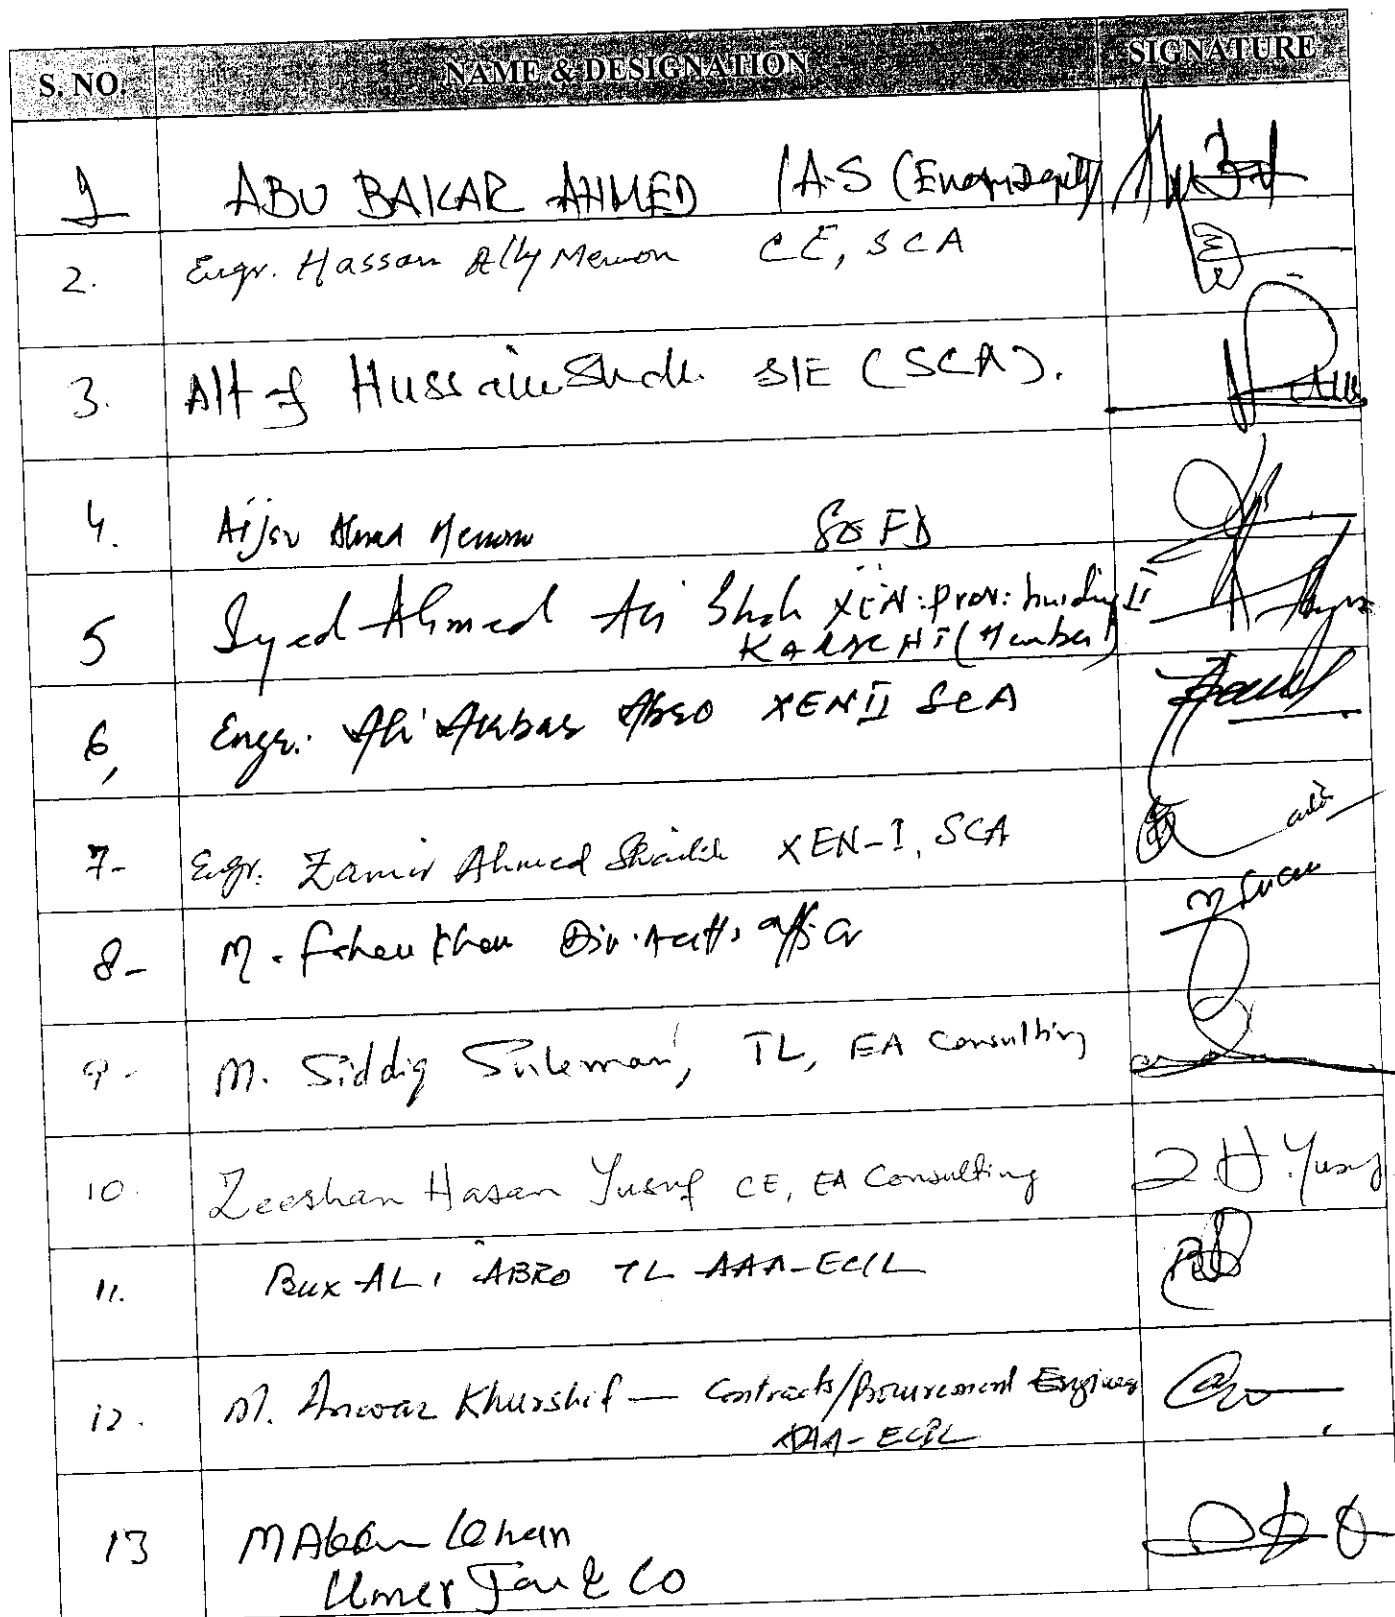 S. NO. NAME & DESIGNATION SIGNATURE
1 ABU BAKAR AHMED / A.S
2. Engr. Hassan Ally Memon CE, SCA
3. Altaf Hussain Shah. S/E (SCA).
4. Aijaz Ahmed Memon SO FD
5 Syed Ahmed Ali Shah XEN: Prov: building II
KARACHI (Member)
6, Engr. Ali Akbar Abro XEN II SCA
7- Engr. Zamir Ahmed Shaikh XEN-I, SCA
8- M. Khan Div. Acctts officer
9- M. Siddiq Suleman, TL, EA Consulting
10. Zeeshan Hasan Yusuf CE, EA Consulting Z H Yusuf
11. BUX ALI ABRO TL AAA-ECIL
12. M. Anwar Khurshid — Contracts/Procurement Engineer
AAA-ECIL
13 M Khan
Umer & Co